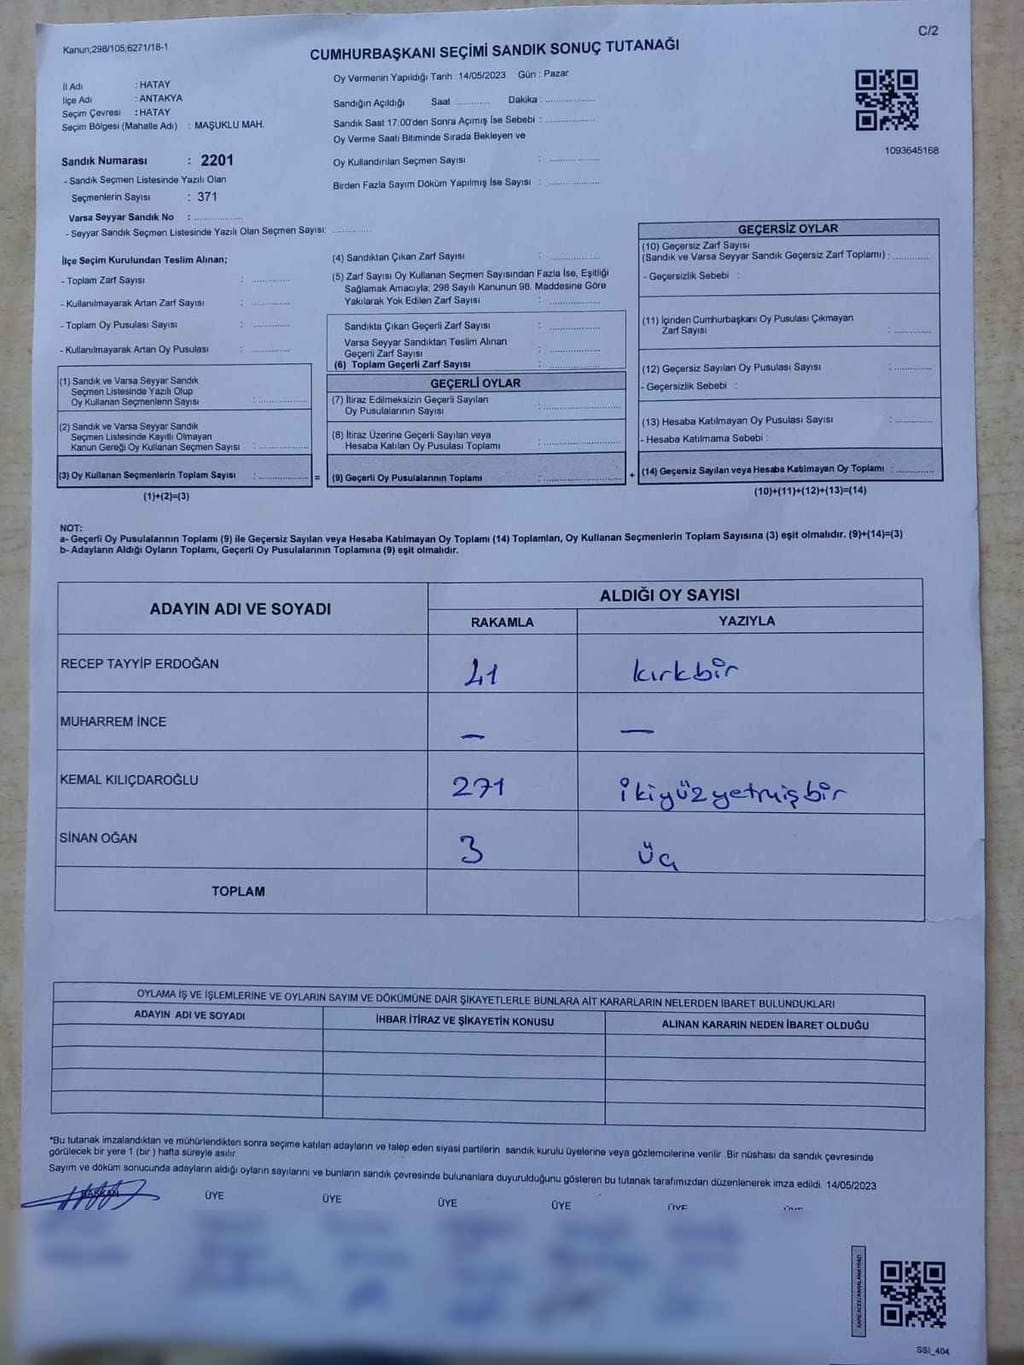 Kanun;298/105;6271/18-1
C/2
CUMHURBAŞKANI SEÇİMİ SANDIK SONUÇ TUTANAĞI
İl Adı : HATAY
İlçe Adı : ANTAKYA
Seçim Çevresi : HATAY
Seçim Bölgesi (Mahalle Adı) : MAŞUKLU MAH.
Oy Vermenin Yapıldığı Tarih : 14/05/2023 Gün : Pazar
Sandığın Açıldığı Saat ............ Dakika ................
Sandık Saat 17:00'den Sonra Açımış İse Sebebi : ................
Oy Verme Saati Bitiminde Sırada Bekleyen ve
Oy Kullandırılan Seçmen Sayısı : ................
Birden Fazla Sayım Döküm Yapılmış İse Sayısı : ................
1093645168
Sandık Numarası : 2201
- Sandık Seçmen Listesinde Yazılı Olan
Seçmenlerin Sayısı : 371
Varsa Seyyar Sandık No : ................
- Seyyar Sandık Seçmen Listesinde Yazılı Olan Seçmen Sayısı: ............
İlçe Seçim Kurulundan Teslim Alınan;
- Toplam Zarf Sayısı : ............
- Kullanılmayarak Artan Zarf Sayısı : ............
- Toplam Oy Pusulası Sayısı : ............
- Kullanılmayarak Artan Oy Pusulası : ............
(1) Sandık ve Varsa Seyyar Sandık
Seçmen Listesinde Yazılı Olup
Oy Kullanan Seçmenlerin Sayısı : ................
(2) Sandık ve Varsa Seyyar Sandık
Seçmen Listesinde Kayıtlı Olmayan
Kanun Gereği Oy Kullanan Seçmen Sayısı : ................
(3) Oy Kullanan Seçmenlerin Toplam Sayısı : ................ =
(1)+(2)=(3)
(4) Sandıktan Çıkan Zarf Sayısı : ................
(5) Zarf Sayısı Oy Kullanan Seçmen Sayısından Fazla İse, Eşitliği
Sağlamak Amacıyla; 298 Sayılı Kanunun 98. Maddesine Göre
Yakılarak Yok Edilen Zarf Sayısı : ................
Sandıkta Çıkan Geçerli Zarf Sayısı : ................
Varsa Seyyar Sandıktan Teslim Alınan
Geçerli Zarf Sayısı : ................
(6) Toplam Geçerli Zarf Sayısı : ................
GEÇERLİ OYLAR
(7) İtiraz Edilmeksizin Geçerli Sayılan
Oy Pusulalarının Sayısı : ................
(8) İtiraz Üzerine Geçerli Sayılan veya
Hesaba Katılan Oy Pusulası Toplamı : ................
(9) Geçerli Oy Pusulalarının Toplamı : ................ +
GEÇERSİZ OYLAR
(10) Geçersiz Zarf Sayısı
(Sandık ve Varsa Seyyar Sandık Geçersiz Zarf Toplamı) : ............
- Geçersizlik Sebebi :
(11) İçinden Cumhurbaşkanı Oy Pusulası Çıkmayan
Zarf Sayısı : ............
(12) Geçersiz Sayılan Oy Pusulası Sayısı : ............
- Geçersizlik Sebebi :
(13) Hesaba Katılmayan Oy Pusulası Sayısı : ............
- Hesaba Katılmama Sebebi :
(14) Geçersiz Sayılan veya Hesaba Katılmayan Oy Toplamı : ............
(10)+(11)+(12)+(13)=(14)
NOT:
a- Geçerli Oy Pusulalarının Toplamı (9) ile Geçersiz Sayılan veya Hesaba Katılmayan Oy Toplamı (14) Toplamları, Oy Kullanan Seçmenlerin Toplam Sayısına (3) eşit olmalıdır. (9)+(14)=(3)
b- Adayların Aldığı Oyların Toplamı, Geçerli Oy Pusulalarının Toplamına (9) eşit olmalıdır.
ADAYIN ADI VE SOYADI
ALDIĞI OY SAYISI
RAKAMLA YAZIYLA
RECEP TAYYİP ERDOĞAN 41 kırkbir
MUHARREM İNCE — —
KEMAL KILIÇDAROĞLU 271 ikiyüzyetmişbir
SİNAN OĞAN 3 üç
TOPLAM
OYLAMA İŞ VE İŞLEMLERİNE VE OYLARIN SAYIM VE DÖKÜMÜNE DAİR ŞİKAYETLERLE BUNLARA AİT KARARLARIN NELERDEN İBARET BULUNDUKLARI
ADAYIN ADI VE SOYADI İHBAR İTİRAZ VE ŞİKAYETİN KONUSU ALINAN KARARIN NEDEN İBARET OLDUĞU
*Bu tutanak imzalandıktan ve mühürlendikten sonra seçime katılan adayların ve talep eden siyasi partilerin sandık kurulu üyelerine veya gözlemcilerine verilir. Bir nüshası da sandık çevresinde
görülecek bir yere 1 (bir) hafta süreyle asılır.
Sayım ve döküm sonucunda adayların aldığı oyların sayılarını ve bunların sandık çevresinde bulunanlara duyurulduğunu gösteren bu tutanak tarafımızdan düzenlenerek imza edildi. 14/05/2023
BAŞKAN ÜYE ÜYE ÜYE ÜYE ÜYE
SSI_404